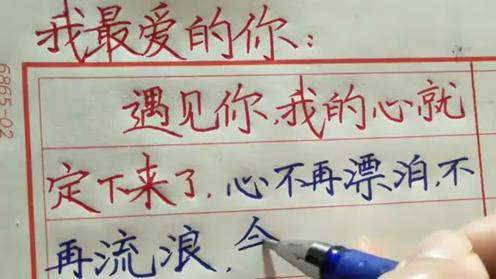 我最爱的你:
遇见你,我的心就
定下来了,心不再漂泊,不
再流浪,今
6865-02